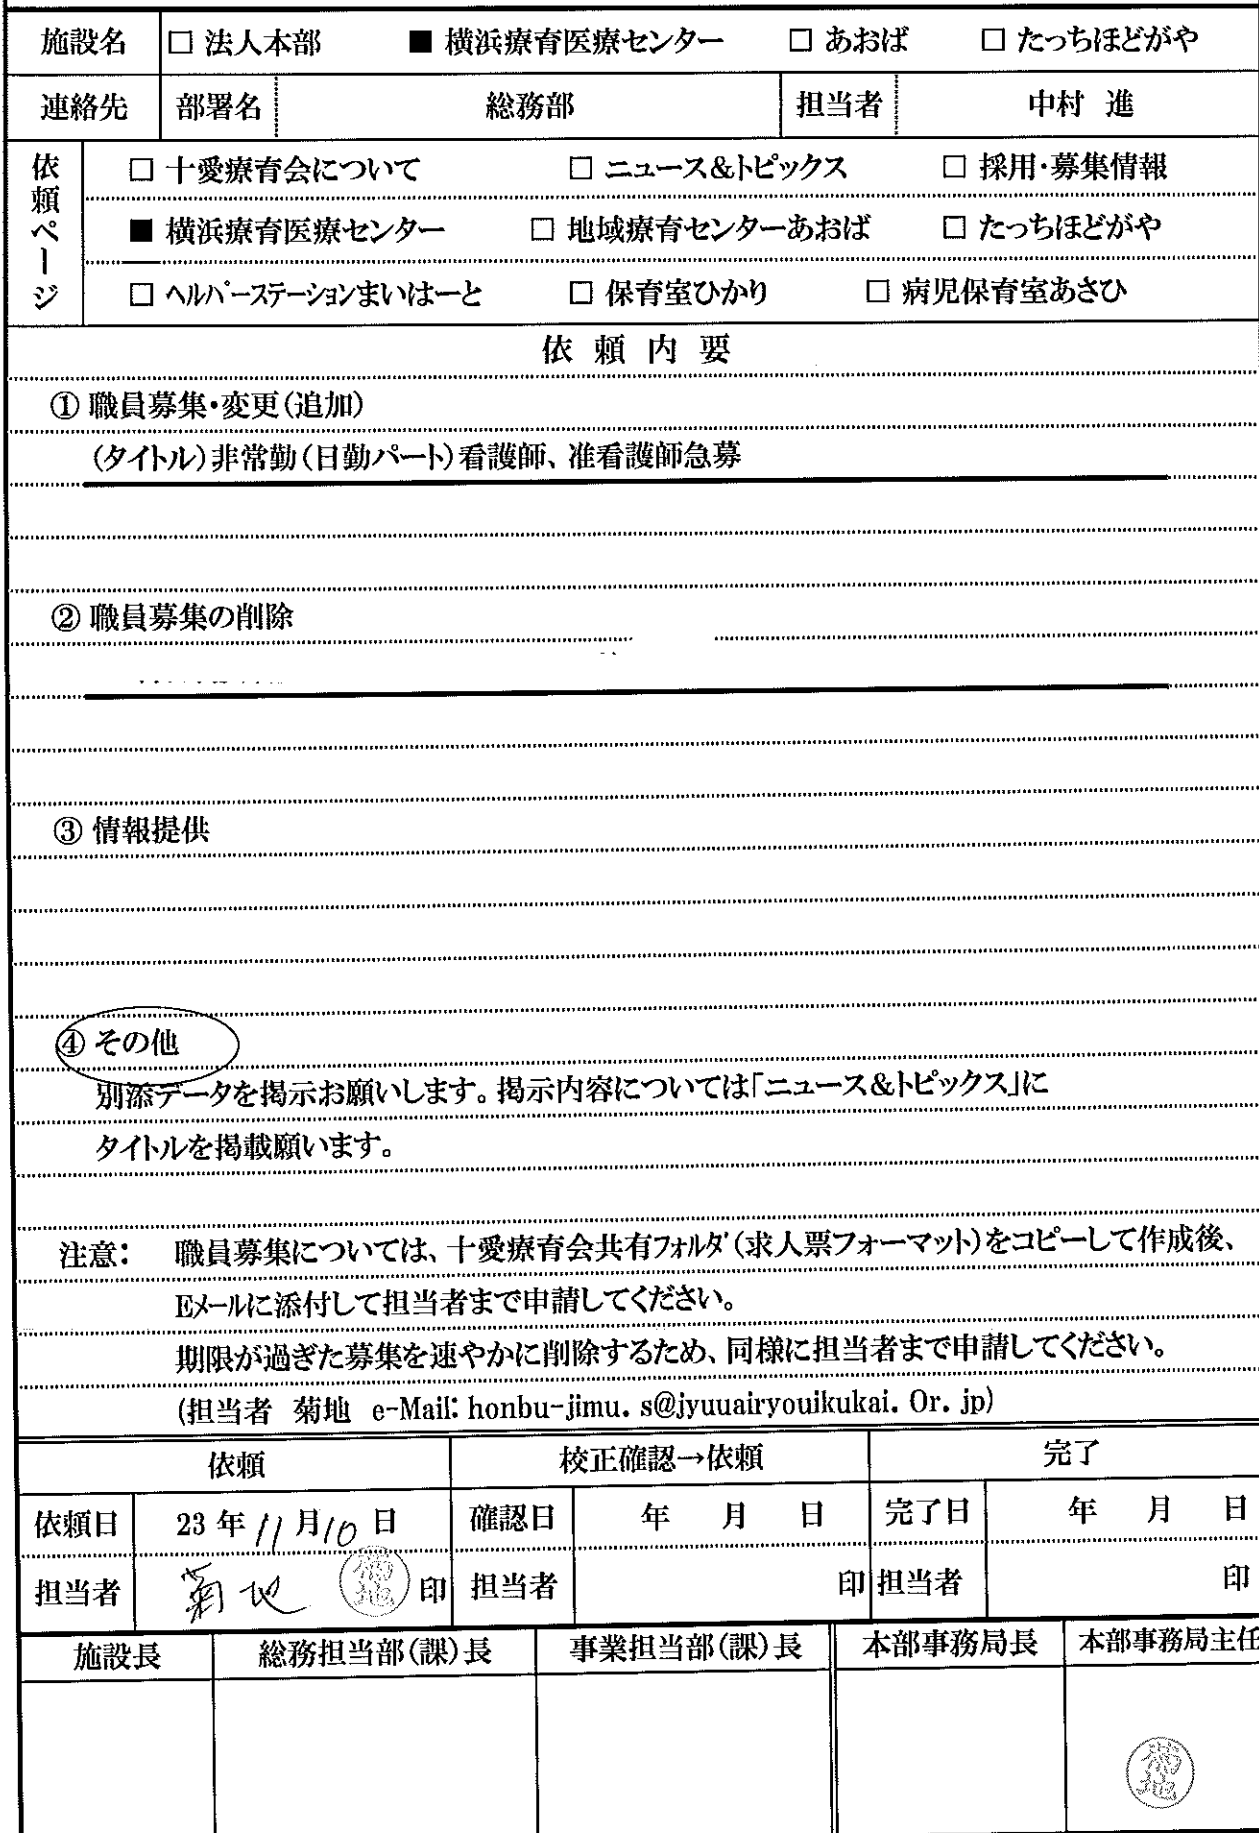 施設名 □ 法人本部 ■ 横浜療育医療センター □ あおば □ たっちほどがや
連絡先 部署名 総務部 担当者 中村 進
依頼ページ
□ 十愛療育会について □ ニュース&トピックス □ 採用・募集情報
■ 横浜療育医療センター □ 地域療育センターあおば □ たっちほどがや
□ ヘルパーステーションまいはーと □ 保育室ひかり □ 病児保育室あさひ
依 頼 内 要
① 職員募集・変更(追加)
(タイトル)非常勤(日勤パート)看護師、准看護師急募
② 職員募集の削除
③ 情報提供
④ その他
別添データを掲示お願いします。掲示内容については「ニュース&トピックス」に
タイトルを掲載願います。
注意: 職員募集については、十愛療育会共有フォルダ(求人票フォーマット)をコピーして作成後、
Eメールに添付して担当者まで申請してください。
期限が過ぎた募集を速やかに削除するため、同様に担当者まで申請してください。
(担当者 菊地 e-Mail: honbu-jimu. s@jyuuairyouikukai. Or. jp)
依頼 校正確認→依頼 完了
依頼日 23 年 11 月 10 日 確認日 年 月 日 完了日 年 月 日
担当者 菊地 菊地 印 担当者 印 担当者 印
施設長 総務担当部(課)長 事業担当部(課)長 本部事務局長 本部事務局主任
菊地